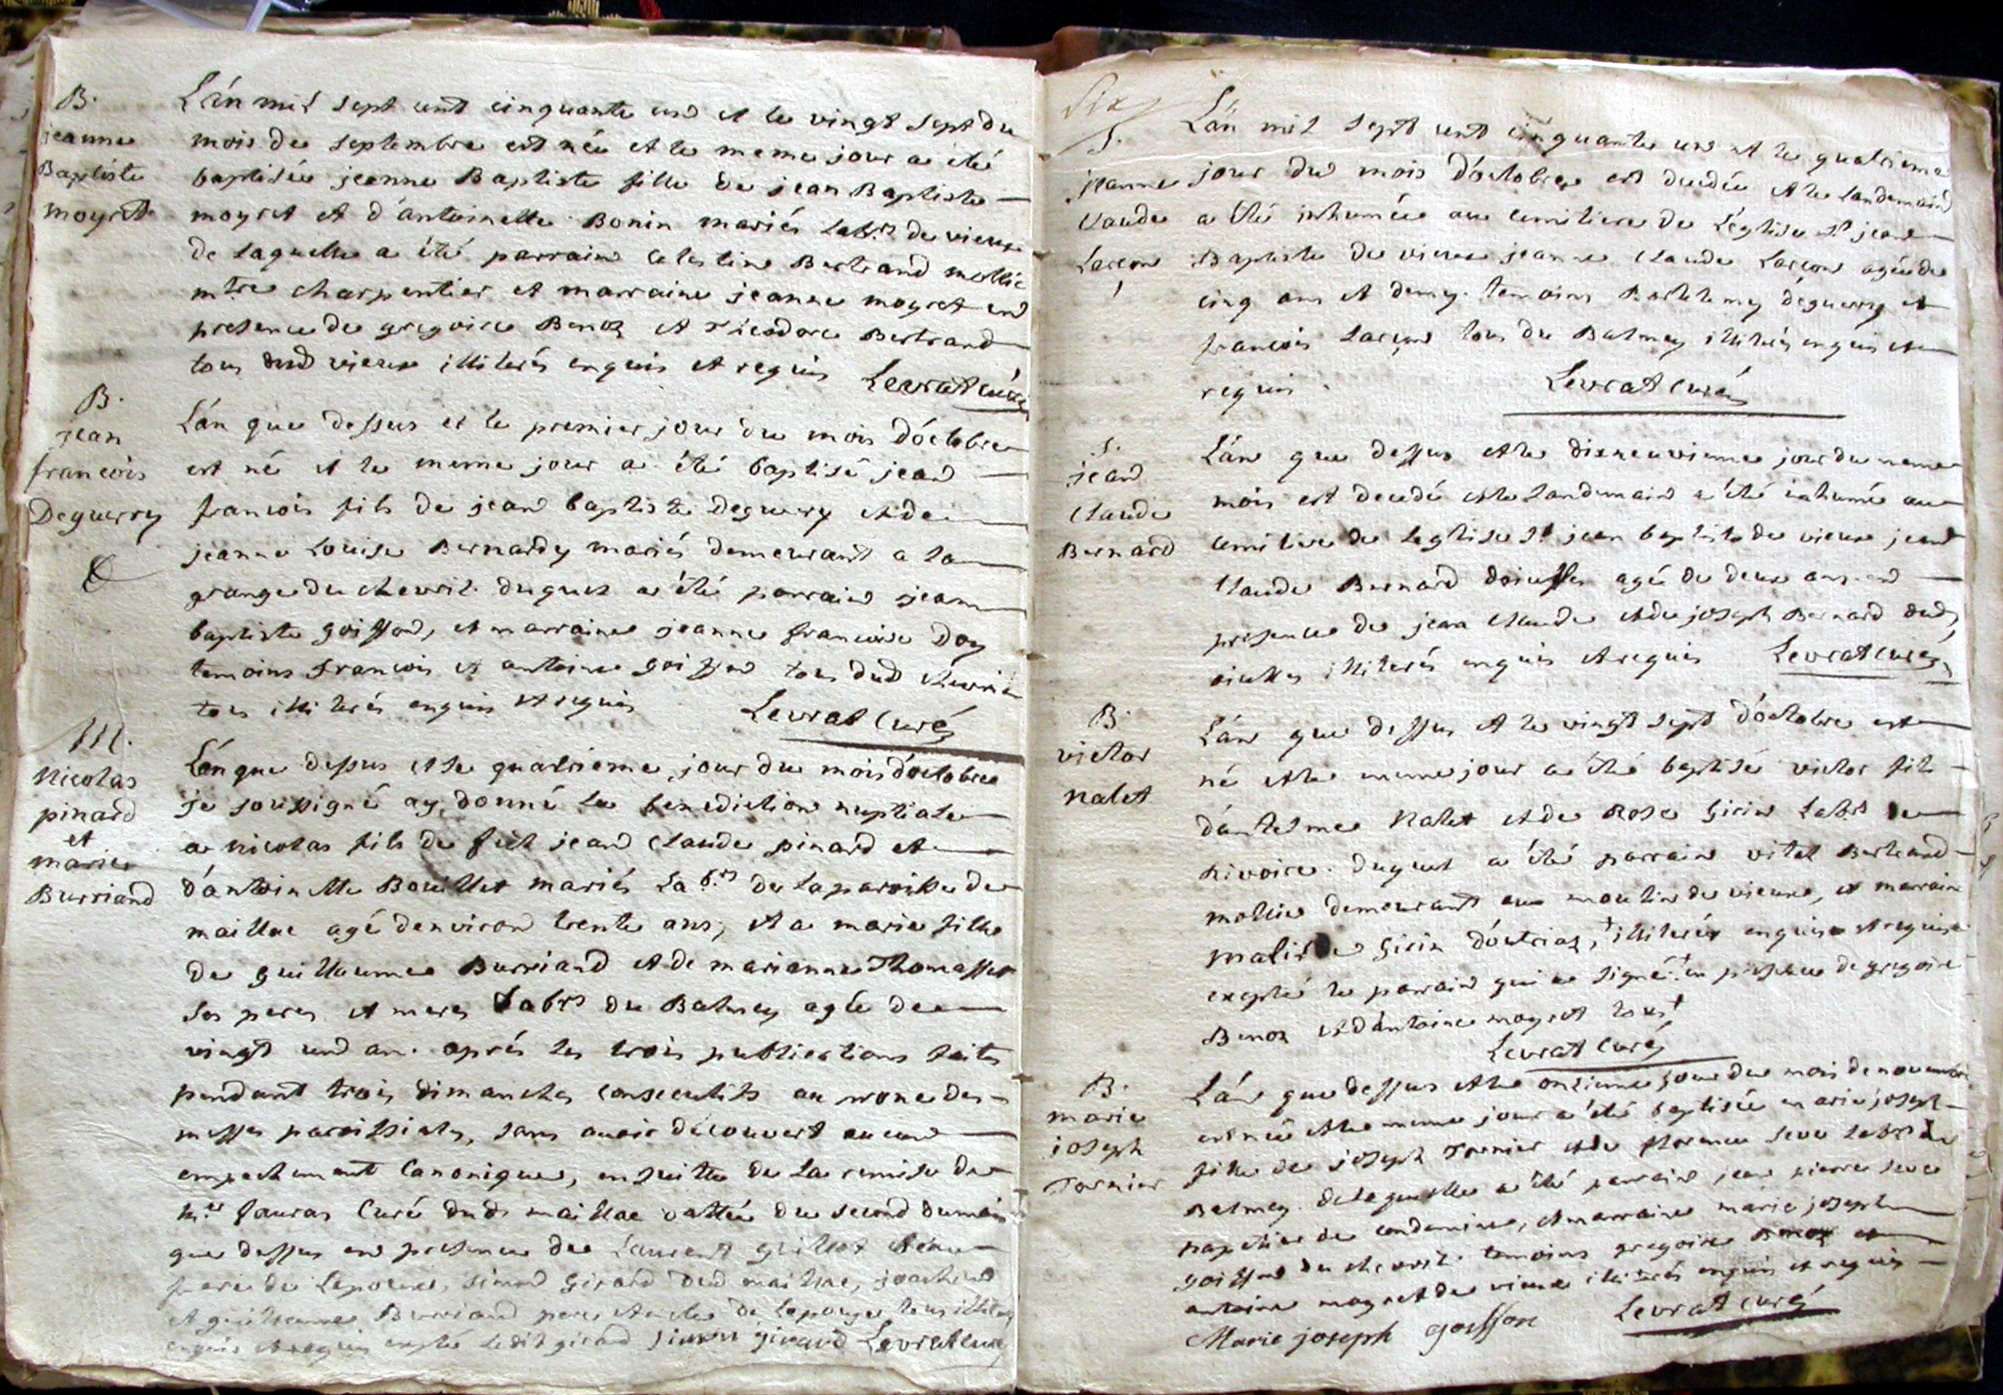 B.
jeanne
Baptiste
moyret
L'an mil sept cent cinquante un et le vingt sept du
mois de septembre est née et le meme jour a été
baptisée jeanne Baptiste fille de jean Baptiste
moyret et d'antoinette Bonin mariés labrs de vieux
de laquelle a été parrain Celestin Bertrand mollie
mtre charpentier et marraine jeanne moyret en
presence de gregoire Benoz et Theodore Bertrand
tous dud vieux illiterés enquis et requis Levrat curé
B.
jean
francois
Deguerry
L'an que dessus et le premier jour du mois d'octobre
est né et le meme jour a été baptisé jean
francois fils de jean baptiste Deguerry et de
jeanne Louise Bernardy mariés demeurant a la
grange du chevril. duquel a été parrain jean
baptiste goiffon, et marraine jeanne francoise Doy
temoins francois et antoine goiffon tous dud chevril
tous illiterés enquis et requis Levrat Curé
M.
Nicolas
pinard
et
marie
Burriand
L'an que dessus et le quatrieme jour du mois d'octobre
je soussigné ay donné la benediction nuptiale
a nicolas fils de feut jean claude pinard et
d'antoinette Bouillet mariés labrs de la paroisse de
maillac agé denviron trente ans, et a marie fille
de guillaume Burriand et de marianne Thomasset
ses peres et meres labrs du Balmey agée de
vingt un an. aprés les trois publications faites
pendant trois dimanches consecutifs au prone des
messes paroissiales, sans avoir découvert aucun
empechement Canonique, ensuitte de la remise de
Mre fauras Curé dud maillac dattée du second du mois
que dessus en presence de Laurent guillot
frere de l'epouse, Simond Girard dud maillac, joachim
et guillaume Burriand pere et de l'epouse tous illiterés
enquis et requis excepté ledit girard Simon girard Levrat curé
Six
S.
jeanne
claude
Larcon
L'an mil sept cent cinquante un et le quatrieme
jour du mois d'octobre est decedée et le landemain
a été inhumée au cemitiere de L'église st jean
Baptiste de vieux jeanne claude Larcon agée de
cinq ans et demy. temoins Barthelemy deguerry et
francois Larcon tous du Balmey illiterés enquis et
requis. Levrat curé
S.
jean
claude
Bernard
L'an que dessus et le dixneuvieme jour du meme
mois est decedé et le landemain a été inhumé au
cemitiere de leglise st jean baptiste de vieux jean
claude Bernard doisselles agé de deux ans en
presence de jean claude et de joseph Bernard dud
oiselles illiterés enquis et requis Levrat curé
B.
victor
Nalet
L'an que dessus et le vingt sept d'octobre est
né et le meme jour a été baptisé victor fils
d'antelme Nalet et de Rose Girin labrs de
Rivoire. duquel a été parrain vital Bertrand
mollie demeurant au moulin de vieux, et marraine
Girin d'outriaz, illiterés enquis et requis
excepté le parrain qui a signé. en presence de gregoire
Benoz et d'antoine moyret
Levrat curé
B.
marie
joseph
Tornier
L'an que dessus et le onzieme jour du mois de novembre
est née et le meme jour a été baptisée marie joseph
fille de joseph Tornier et de florence seve labrs de
Balmey. de laquelle a été parrain jean pierre seve
papetier de condamine, et marraine marie joseph
goiffon du chevril. temoins gregoire Benoz et
antoine moyret de vieux illiterés enquis et requis
Marie joseph goiffon Levrat curé